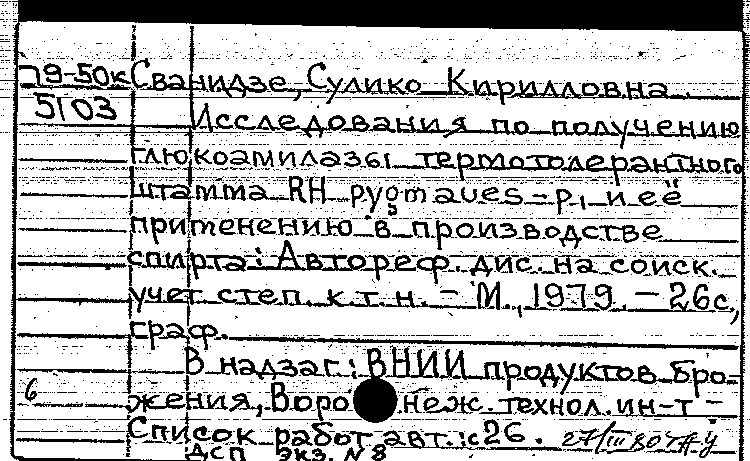 79-50к Сванидзе, Сулико Кирилловна.
5103 Исследования по получению
глюкоамилазы термотолерантного
штамма RH pygmaues-p, и её
применению в производстве
спирта: Автореф. дис. на соиск.
учет степ. к.т.н. - М., 1979. - 26с,
граф.
В надзаг.: ВНИИ продуктов бро-
6 жения, Воронеж. технол. ин-т -
Список работ авт.: с 26. 27/III 80
ДСП экз. N 8